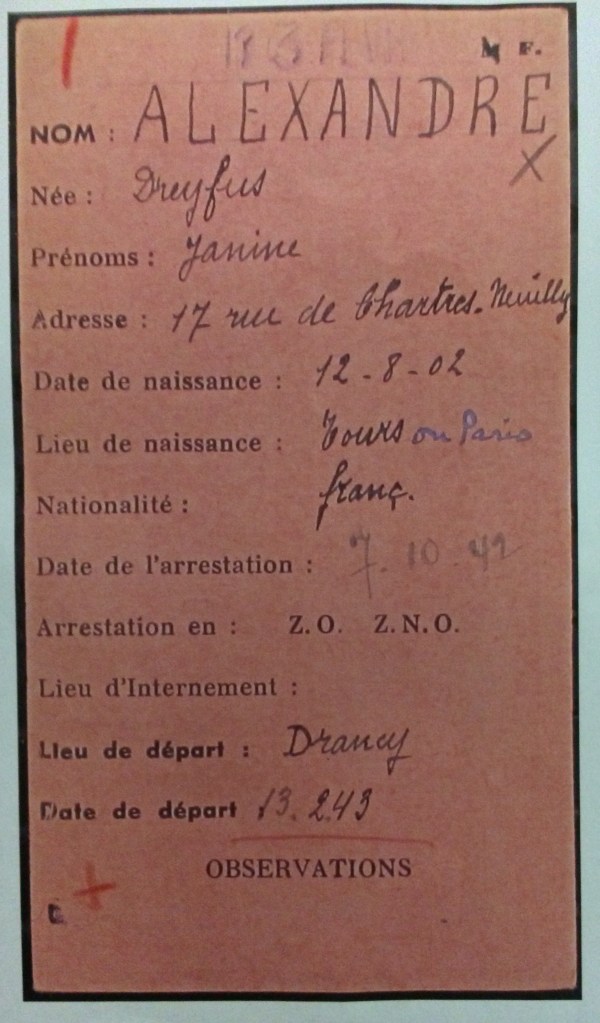 M F.
NOM : ALEXANDRE
Née : Dreyfus
Prénoms : Janine
Adresse : 17 rue de Chartres. Neuilly
Date de naissance : 12-8-02
Lieu de naissance : Tours ou Paris
Nationalité : franç.
Date de l'arrestation : 7.10.42
Arrestation en : Z.O. Z.N.O.
Lieu d'Internement :
Lieu de départ : Drancy
Date de départ 13.2.43
OBSERVATIONS